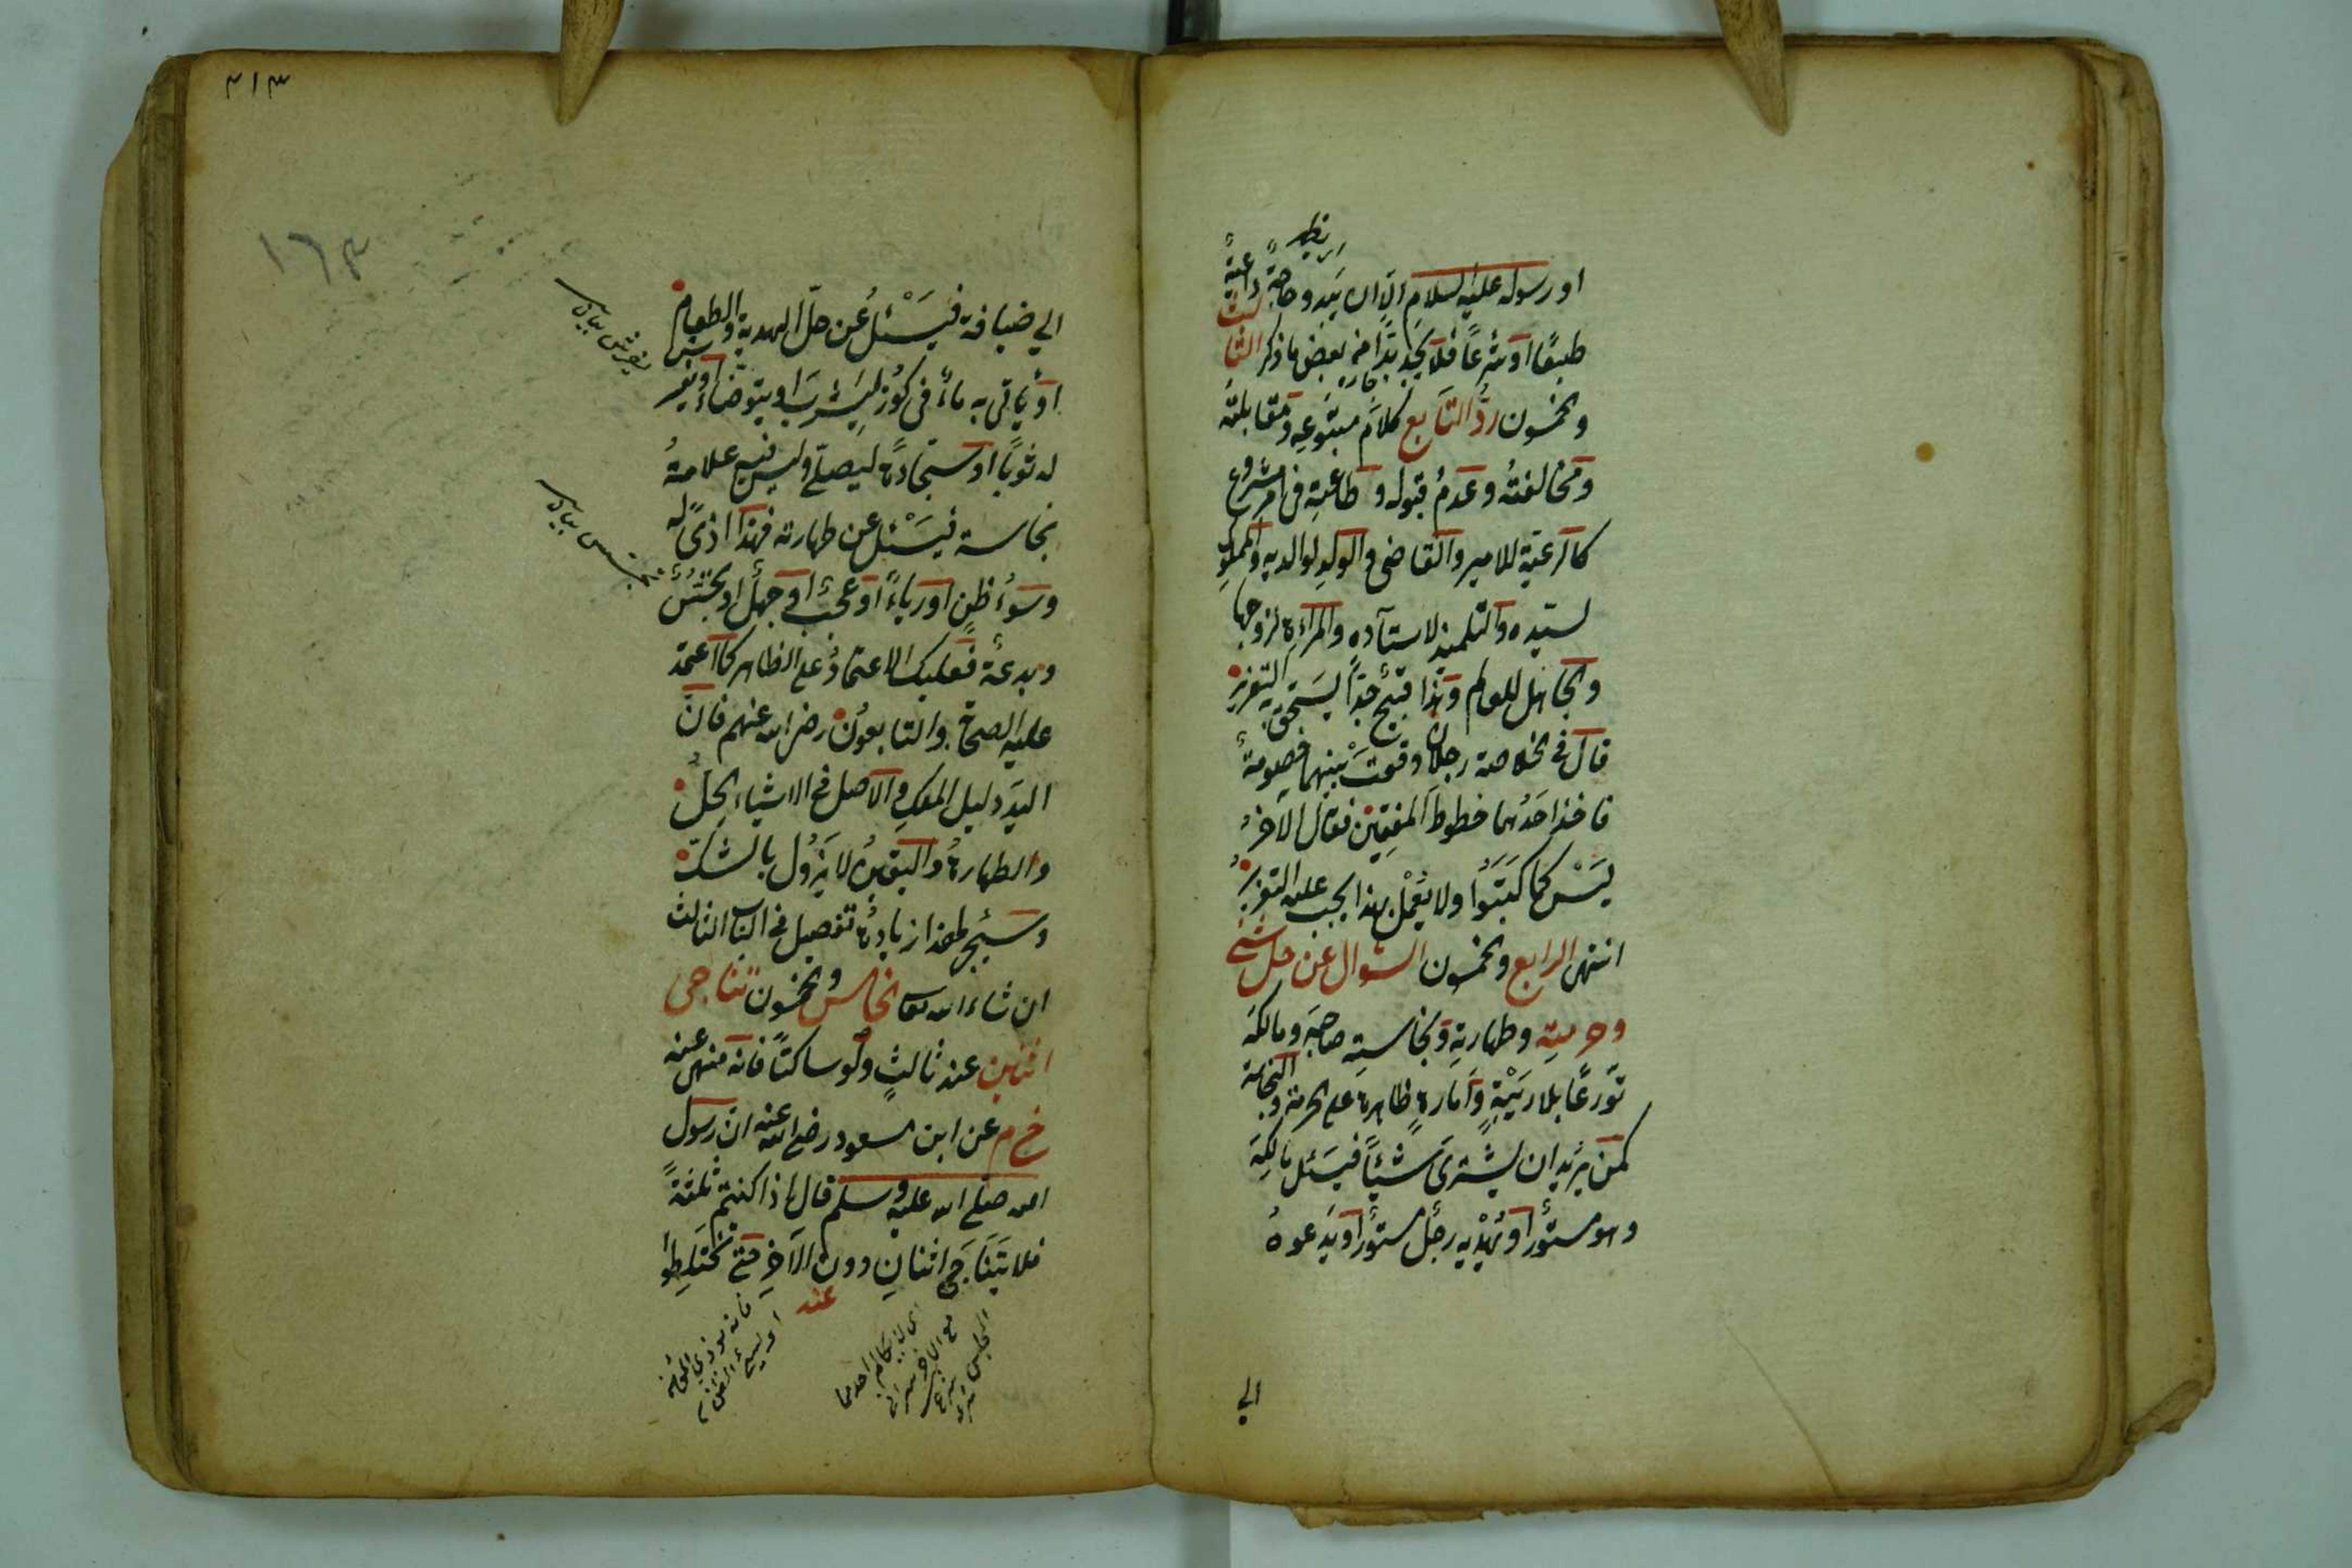 او رسوله عليه السلام الا ان يبدو حاجة داعية
طبعًا او شرعًا فلا يجد بدًا من بعض ما ذكر الثالث
والخمسون ردّ التابع كلام متبوعه ومقابلته
ومخالفته وعدم قبوله وطاعته في امر مشروع
كالرعية للامير والقاضي والولد لوالديه والمملوك
لسيده والتلميذ لاستاذه والمراءة لزوجها
والجاهل للعالم وهذا قبيح جدًا يستحق به التعزير
قال في الخلاصة رجلان وقعت بينهما خصومة
فاخذ احدهما خطوط المفتين فقال الآخر
ليس كما كتبوا ولا يعمل بهذا يجب عليه التعزير
انتهى الرابع والخمسون السؤال عن حل شئ
وحرمته وطهارته ونجاسته صاحبه ومالكه
تورعًا بلا ريبة وامارة ظاهرة على الحرمة والنجاسة
كمن يريد ان يشترى شيئًا فيسئل مالكه
وهو مستور او يهديه رجل مستور او يدعوه
الي
٣١٣
١٦٣
الي ضيافة فيسئل عن حل الهدية والطعام
او ياتي به ماء في كوز ليشرب او يتوضاء او يفرش
له ثوبًا او سجادة ليصلي وليس فيه علامة
نجاسة فيسئل عن طهارته فهذا اذى له
وسوء ظن او رياء او عجب او جهل او تجسس
وبدعة فعليك الاعتماد على الظاهر كما اعتمد
عليه الصحابة والتابعون رضي الله عنهم فان
اليد دليل الملك والاصل في الاشياء الحل
والطهارة واليقين لا يزول بالشك
وسيجئ لهذا زيادة تفصيل في الباب الثالث
ان شاء الله تعالى الخامس والخمسون تناجى
اثنين عند ثالث ولو ساكتًا فانه منهى عنه
خ م عن ابن مسعود رضي الله عنه ان رسول
الله صلى الله عليه وسلم قال اذا كنتم ثلثة
فلا يتناجى اثنان دون الآخر حتى تختلطوا
عند
اى لا يتكلم احدهما
مع الآخر سرا في
المجلس
فانه يؤذي